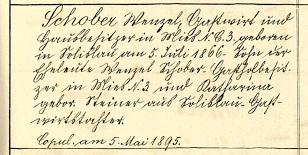 Schober Wenzel, Gastwirt und
Hausbesitzer in Mies N.C. 3. geboren
in Solislau, am 5. Juli 1866. Sohn der
Eheleute Wenzel Schober. Gasthofbesit-
zer in Mies N. 3 und Katharina
gebor. Steiner aus Solislau. Gast-
wirtstochter.
Copul. am 5. Mai 1895.